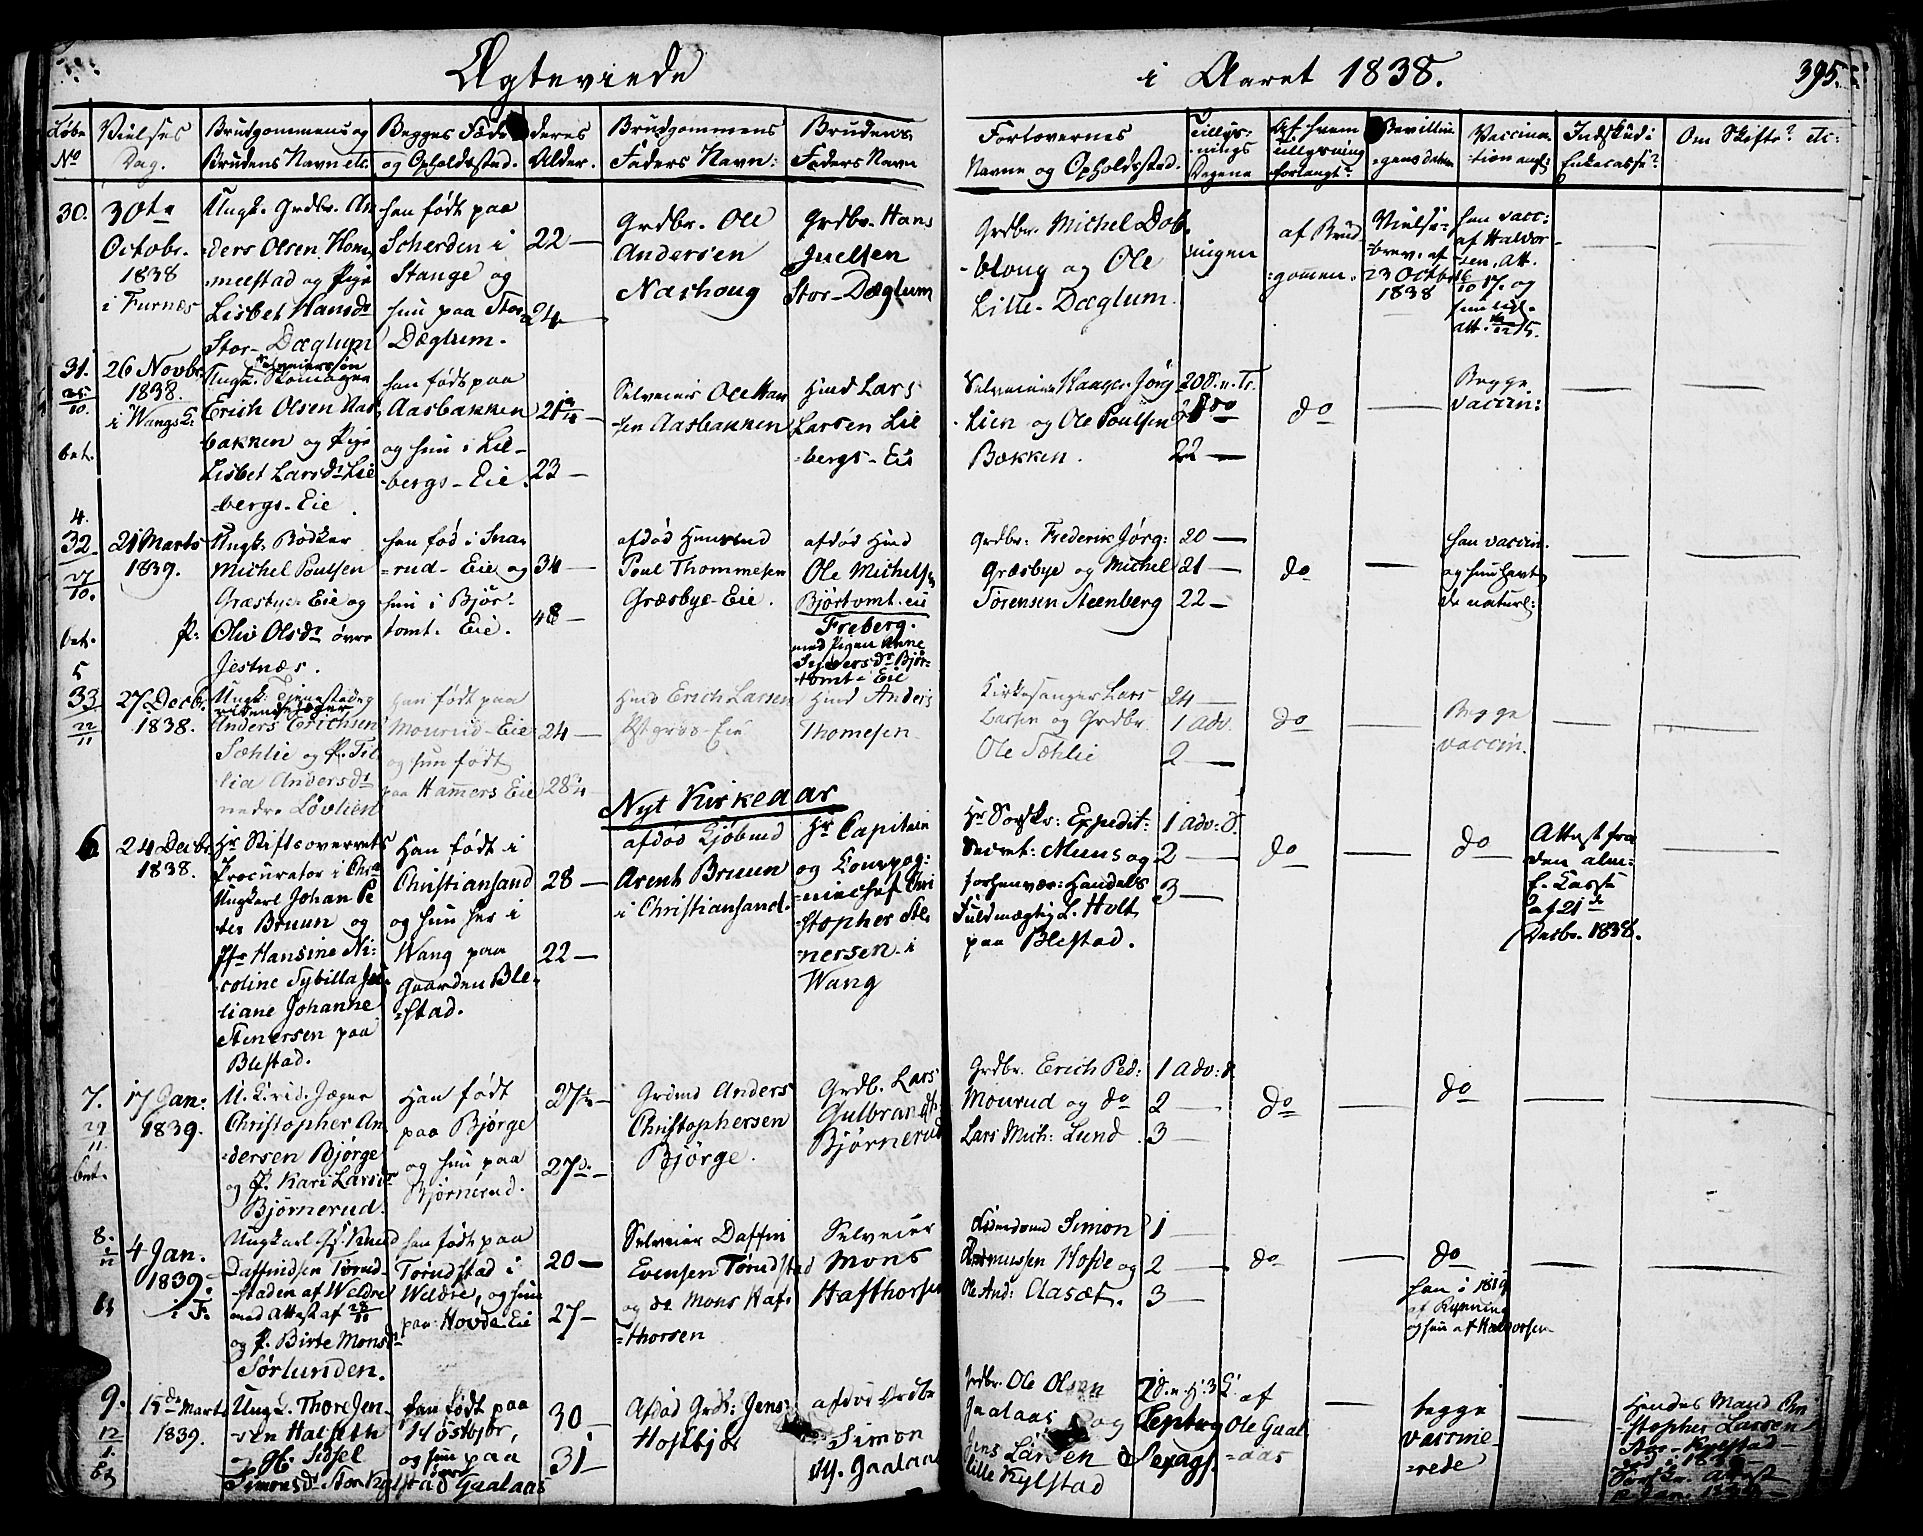 Ægteviede
i Aaret 1838.
395.
Løbe
No
Vielses
Dag.
Brudgommens og
Brudens Navn etc.
Begges Føde
og Opholdssted.
deres
Alder.
Brudgommens
Faders Navn:
Brudens
Faders Navn
Forlovernes
Navne og Opholdssted.
Tillys-
nings
Dagene
Af hvem
Tillysning
forlangt
Bevillin-
gens datum
Vaccina-
tion angl:
Indskud i
Enkecasse?
Om Skifte? etc:
30.
30te
Octobr.
1838
i Furnæs
Ungk. Grdbr. An-
ders Olsen Hom-
melstad og Pige
Lisbet Hansdr
Stor-Dæglum
han født paa
Scherden i
Stange og
hun paa Stor
Dæglum.
22
24
Grdbr. Ole
Andersen
Nashoug
Grdbr. Hans
Juelsen
Stor-Dæglum
Grdbr. Michel Dob-
bloug og Ole
Lille-Dæglum.
ingen
af Brud
gomen.
Vielse-
brev. af
23 Octbr
1838
han vacc:
af Haldor-
sen, att.
17. og
hun
att. 15.
31.
25/10.
bet.
26 Novbr.
1838.
i Wangs K:
Selveierssøn
Ungk. Skomager
Erich Olsen Aas-
bakken og Pige
Lisbet Larsdr Lie
bergs-Eie.
han født paa
Aasbakken
og hun i Lie-
bergs-Eie.
21
23
Selveier Ole Han
sen Aasbakken
Huusmd Lars
Larsen Lie
bergs-Eie
Selveier Haagen Jørg
Lien og Ole Poulsen
Bakken.
20 S. n. Tr.
do
22
do
Begge
vaccin:
4.
32.
27/10.
bet.
5
21 Marts
1839.
P:
Ungk. Bødker
Michel Poulsen
Græsbye-Eie og
Oliv Olsdr øvre
Jestnæs.
han fød i Sna-
rud-Eie og
hun i Bjør-
tomt. Eie.
34
48
afdød Huusmd
Poul Thommesen
Græsbye-Eie.
afdød Husmd
Ole Michelsen
Bjørtomt. eie
Freberg.
med Pigen Anne
Siversdr Bjør-
tomt-Eie
Grdbr. Frederik Jørg:
Græsbye og Michel
Sørensen Steenberg
20
21
22
do
han vaccin.
og hun havt
de naturl:
33
22/11
27 Decb.
1838.
Ungk. Tjenestedreng
Anders Erichsen
Sæhlie og P. Til-
lia Andersdr
nedre Løvlien
han født paa
Mourud-Eie
og hun født
paa Hamers Eie
24
28¾
Husmd Erich Larsen
Eie
Husmd Anders
Thomesen
Kirkesanger Lars
Larsen og Grdbr
Ole Sæhlie
24
1 adv.
2
do
Begge
vaccin.
Nyt Kirkeaar
6
24 Decbr.
1838.
Hr Stiftsoverrets
Procurator i Chra
Ungkarl Johan Pe-
ter Bruun og
Jfr Hansine Ni-
coline Sybilla Ju-
liane Johanne
Stenersen paa
Blestad.
Han født i
Christiansand
og hun her i
Wang paa
Gaarden Ble-
stad.
28
22
afdød Kjøbmd
Arent Bruun
i Christiansand.
Hr Capitain
og Compag-
niechef Chri
stopher Ste
nersen i
Wang
Hr Sorskr: Expedit:
Secret: Muus og
forhenvær: Handels
Fuldmægtig L. Holt
paa Blestad.
1 adv: S.
2
3
do
do
Attest fra
den alm:
E. Casse
af 21de
Decbr. 1838.
7.
29
11.
bet.
17 Jan:
1839.
U. K. rid. Jæger
Christopher An-
dersen Bjørge
og P. Kari Larsdr
Bjørnerud.
Han født
paa Bjørge
og hun paa
Bjørnerud.
27½
27
Grdmd Anders
Christophersen
Bjørge.
Grdb. Lars
Gulbrandsen
Bjørnerud
Grdbr. Erich Ped:
Mourud og do
Lars Mich: Lund.
1 adv:
2
3
do
do
8.
4 Jan.
1839.
i F.
Ungkarl Gf. Knud
Daffindsen Torud-
staden af Weldre
med Attest af 28/11
og P. Birte Monsdr
Sørlunden.
han født paa
Torudstad i
Weldre, og hun
paa Hovde Eie
20
27
Selveier Daffin
Evensen Torudstad
og do Mons Haf-
thorsen
Selveier
Mons
Hafthorsen
Simon
Rasmussen Hofde og
Ole And: Aasæt.
1
2
3
do
do
han i 1819
af Rynning
og hun af Haldorsen
9.
12
1.
15de Marts
1839.
Ungk. Thore Jen-
sen Halseth
og H. Sidsel
Simonsdr Stor Kylstad
han født paa
Høstbjør,
og hun paa
Gaalaas
30
31
Afdød Grdb: Jens
Hostbjør
afdød Grdbr
Simon
M. Gaalaas
Grdbr. Ole Olsen
Gaalaas og
Jens Larsen
lille Kylstad
2 S. n. H. 3 K:
Septuag
Sexags.
af
Ole Gaal
aas
begge
vaccine-
rede
Hendes Mand Chri
stopher Larsen
Kylstad